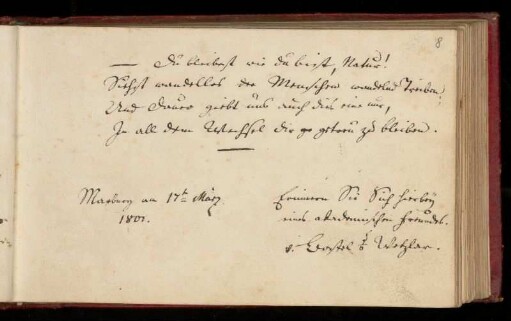 8
— Du bleibest wie du bist, Natur!
Siehst wandellos der Menschen wandelnd Treiben,
Und Dauer giebt uns auch die eine nur,
In all dem Wechsel dir getreu zu bleiben.
Marburg am 17t März
1801.
Erinnern Sie Sich hierbey
eines akademischen Freundes.
v. Bostel Wetzlar.